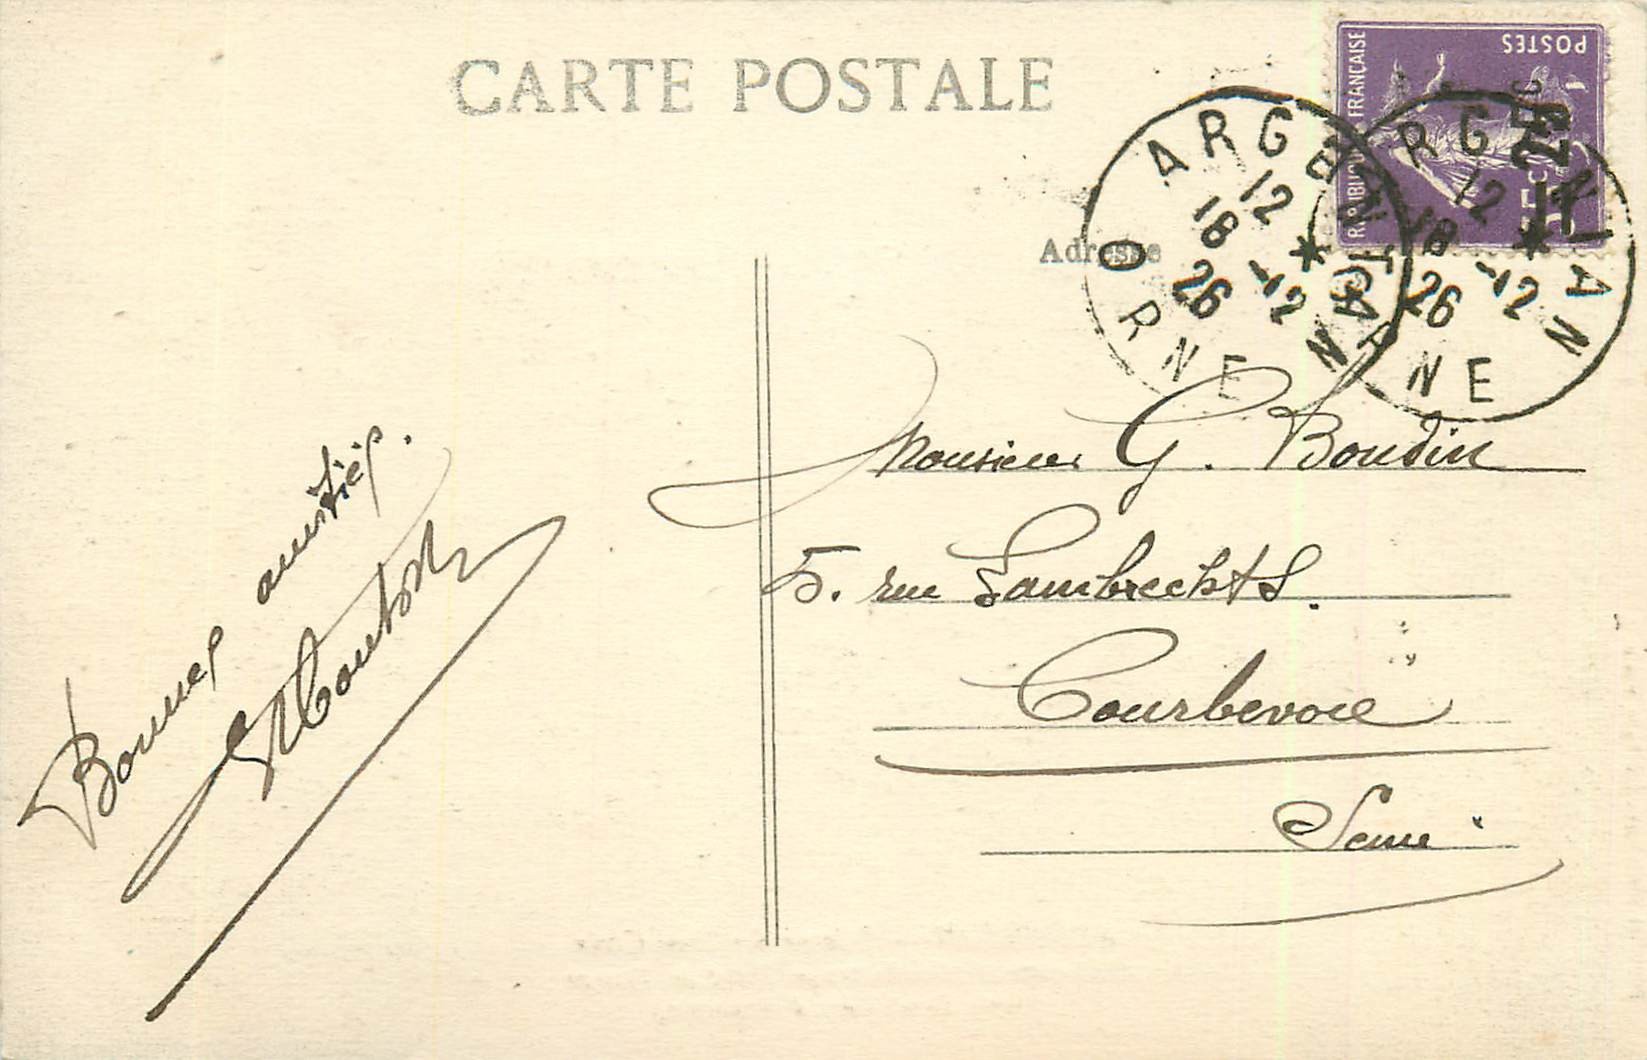 CARTE POSTALE
Adresse
REPUBLIQUE FRANÇAISE
POSTES
ARGENTAN
12
18 -12
26
ORNE
ARGENTAN
12
18 -12
26
NE
Monsieur G. Boudin
5. rue Lambrechts.
Courbevoie
Seine
Bonnes amitiés.